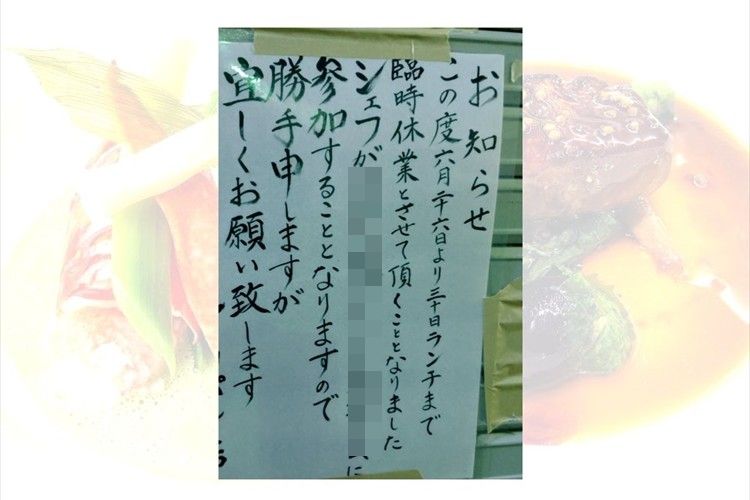 お知らせ
この度六月二十六日より三十日ランチまで
臨時休業とさせて頂くこととなりました
シェフが
に
参加することとなりますので
勝手申しますが
宜しくお願い致します